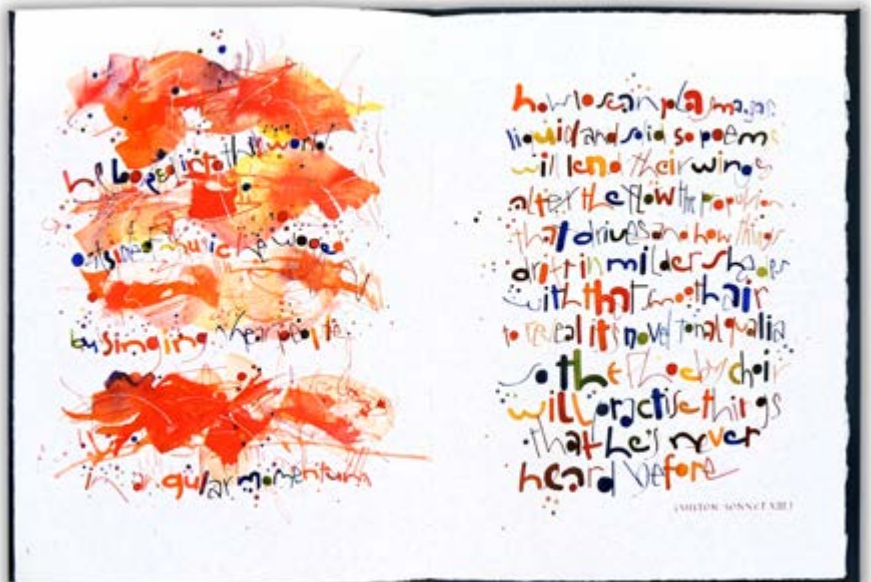 he into this world
music he wooed
by singing people
in angular momentum
how to scan plasma gas
liquid and solid so poems
will lend their wings
alter the flow the propulsion
that drives and how things
drift in milder shades
with that smooth air
to reveal its novel tonal qualia
so the choir
will practise things
that he's never
heard before
(MILTON SONNET XIII)